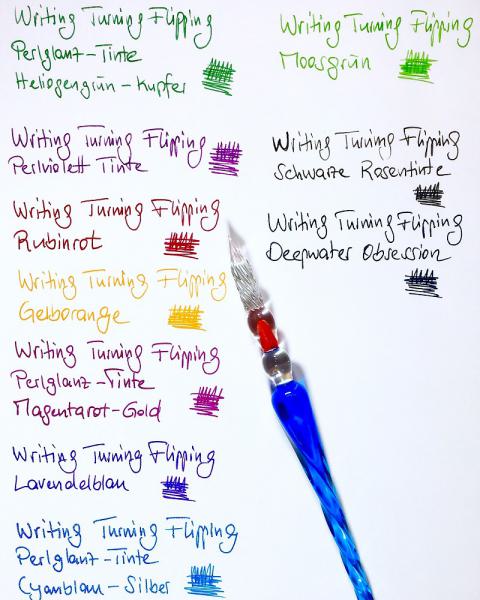 Writing Turning Flipping
Perlglanz-Tinte
Heliogengrün - Kupfer
Writing Turning Flipping
Perlviolett Tinte
Writing Turning Flipping
Rubinrot
Writing Turning Flipping
Gelborange
Writing Turning Flipping
Perlglanz-Tinte
Magentarot-Gold
Writing Turning Flipping
Lavendelblau
Writing Turning Flipping
Perlglanz-Tinte
Cyanblau-Silber
Writing Turning Flipping
Moosgrün
Writing Turning Flipping
Schwarze Rosentinte
Writing Turning Flipping
Deepwater Obsession